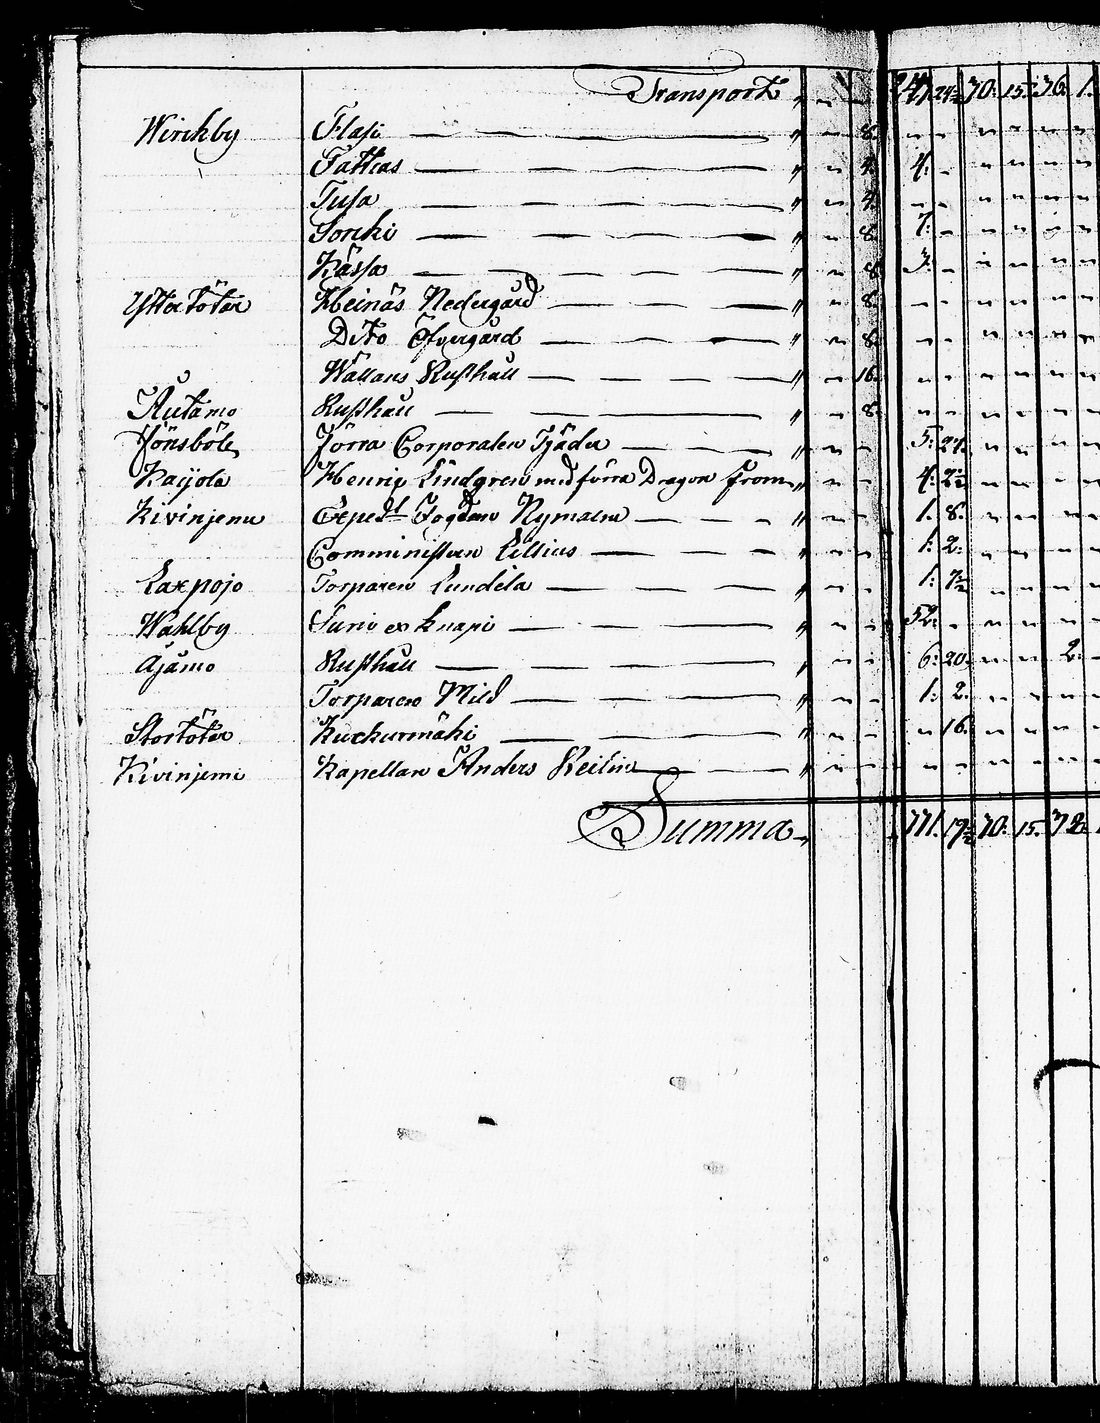 Transport " " - 24½ 70: 15: 36. 1.
Wirckby Flasi " " 8. " " " " " "
Tattias " " 4. 4: - " " " "
Tusa " " 4. " " " " " "
Sorcki " " 8. 7: - " " " "
Kässa " " 8. 3: - " " " "
Ytter Töter Heinäs Nedergård " " 8. " " " " " "
Dito Öfvergård " " 8. " " " " " "
Wallans Rusthåll " " 16. " " " " " "
Autamo Rusthåll " " 8. " " " " " "
Jönsböle Förra Corporalen Tjäder " " " 5: 24. " " " "
Kaijola Henric Lindgren med förra Dragon From " " " 4: 2½ " " " "
Kivinjemi Exped:t Fogden Nyman " " " 1. 8. " " " "
Comministern Lillius " " " 1: 2: " " " "
Laxpojo Torparen Lundela " " " 1: 7½ " " " "
Wahlby Surio ex Knapi " " " 52. " " " " "
Ajämo Rusthåll " " " 6: 20. " " 2: "
Torparen Mild " " " 1: 2. " " " "
Stortöter Kuckurmäki " " " " 16. " " " "
Kivinjemi Kapellan Anders " " " " " " " " "
Summa 771. 19½ 70: 15. 72.